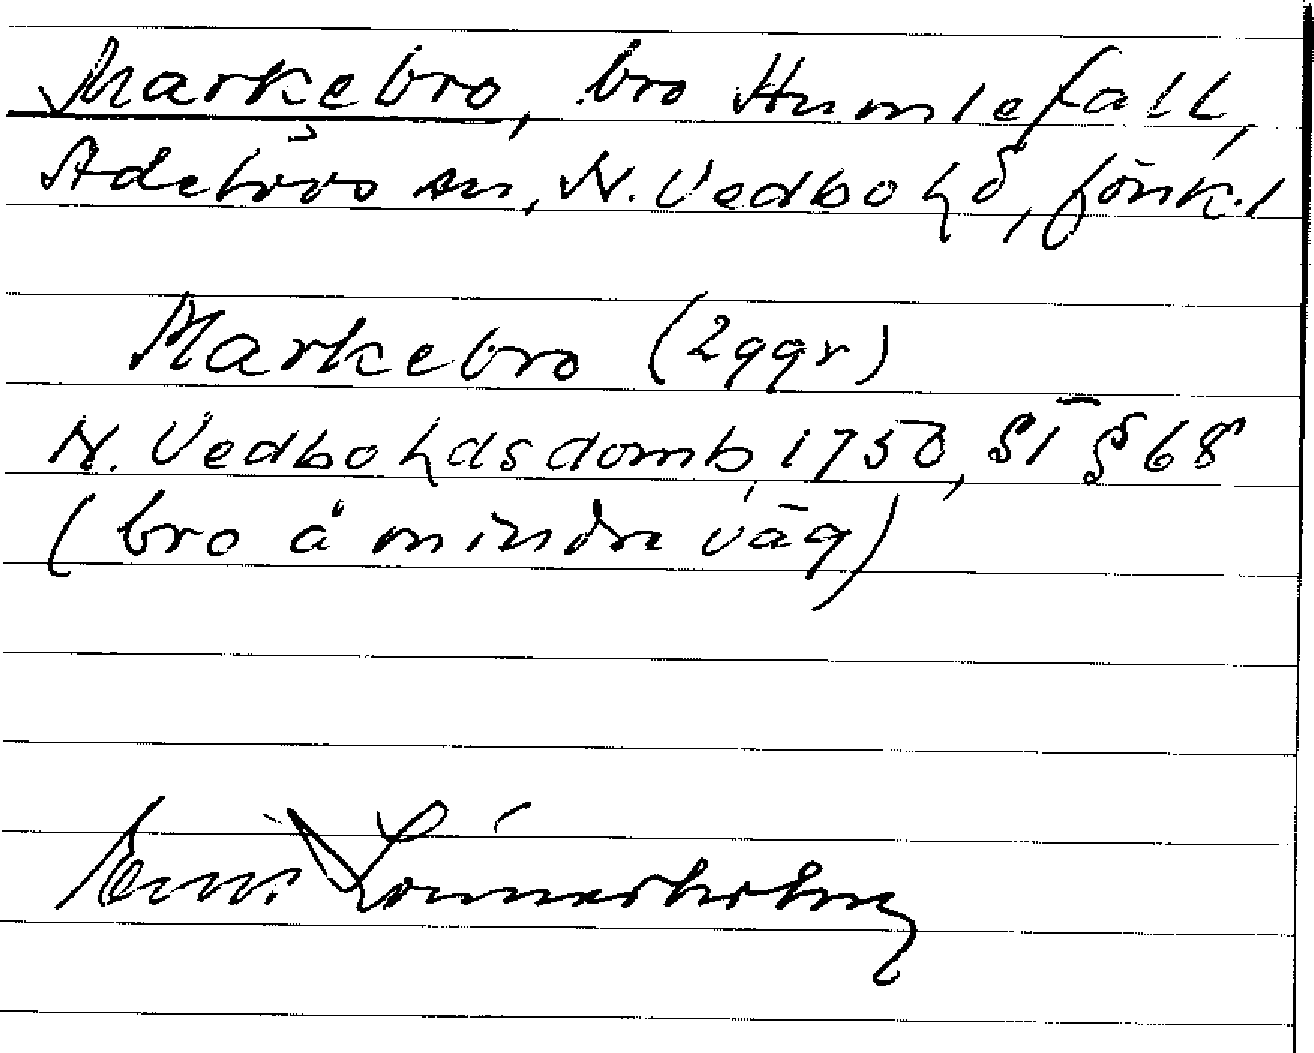 Markebro, bro Humlefall,
Adelövs sn, N. Vedbo hd, Jönk. l
Markebro (2ggr)
N. Vedbo hds domb. 1750, § 68
(bro å mindre väg)
Lönnerholm